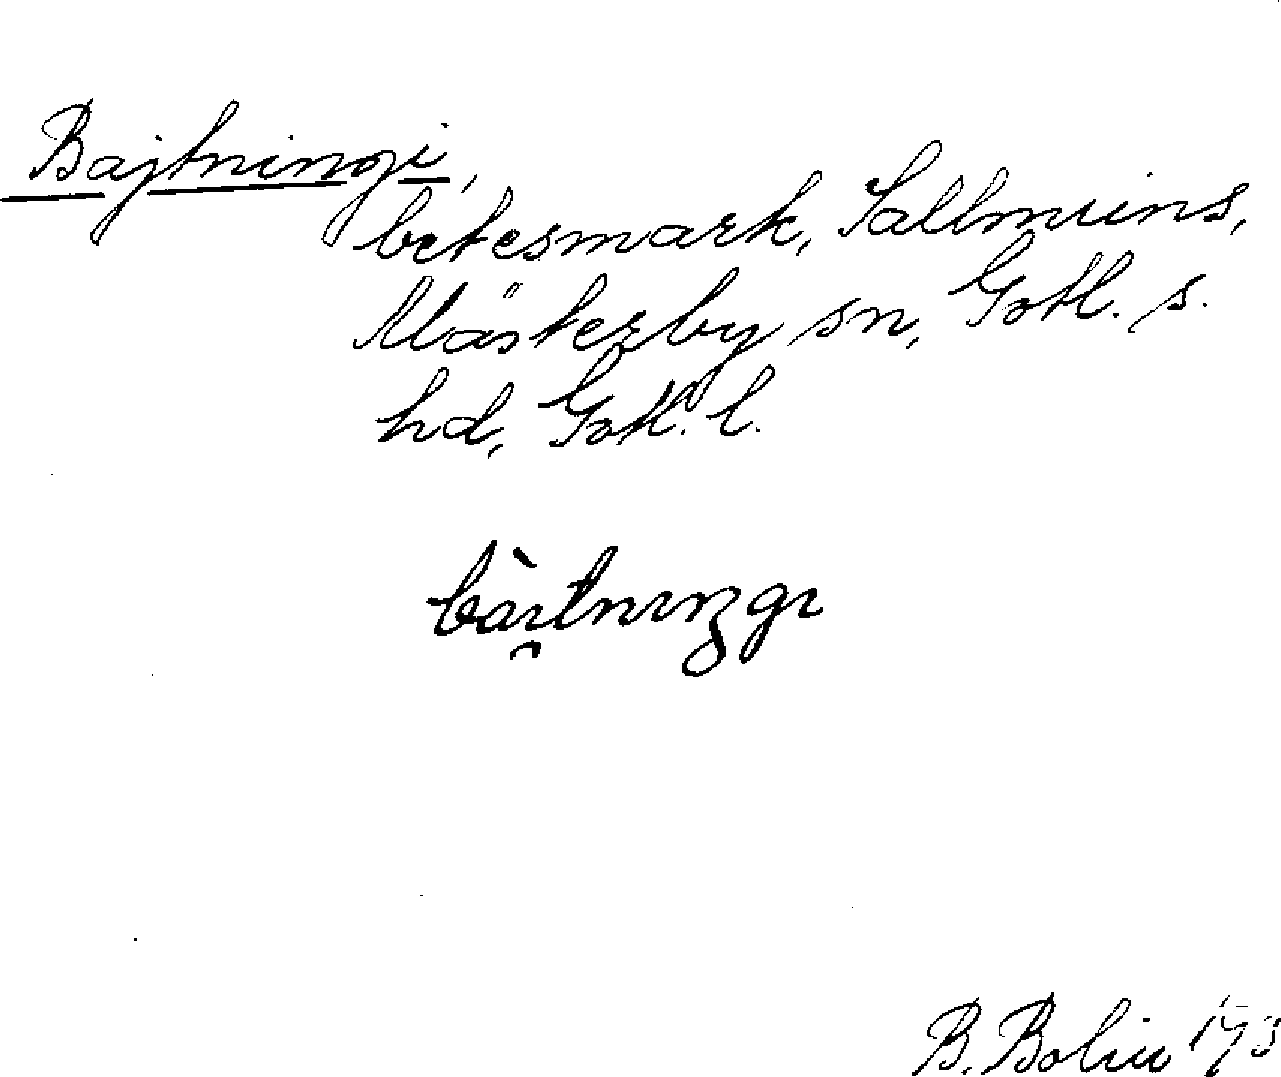 Bajtningi,
betesmark, Sallmuins,
Mästerby sn, Gotl. s.
hd, Gotl. l.
B. Bolin